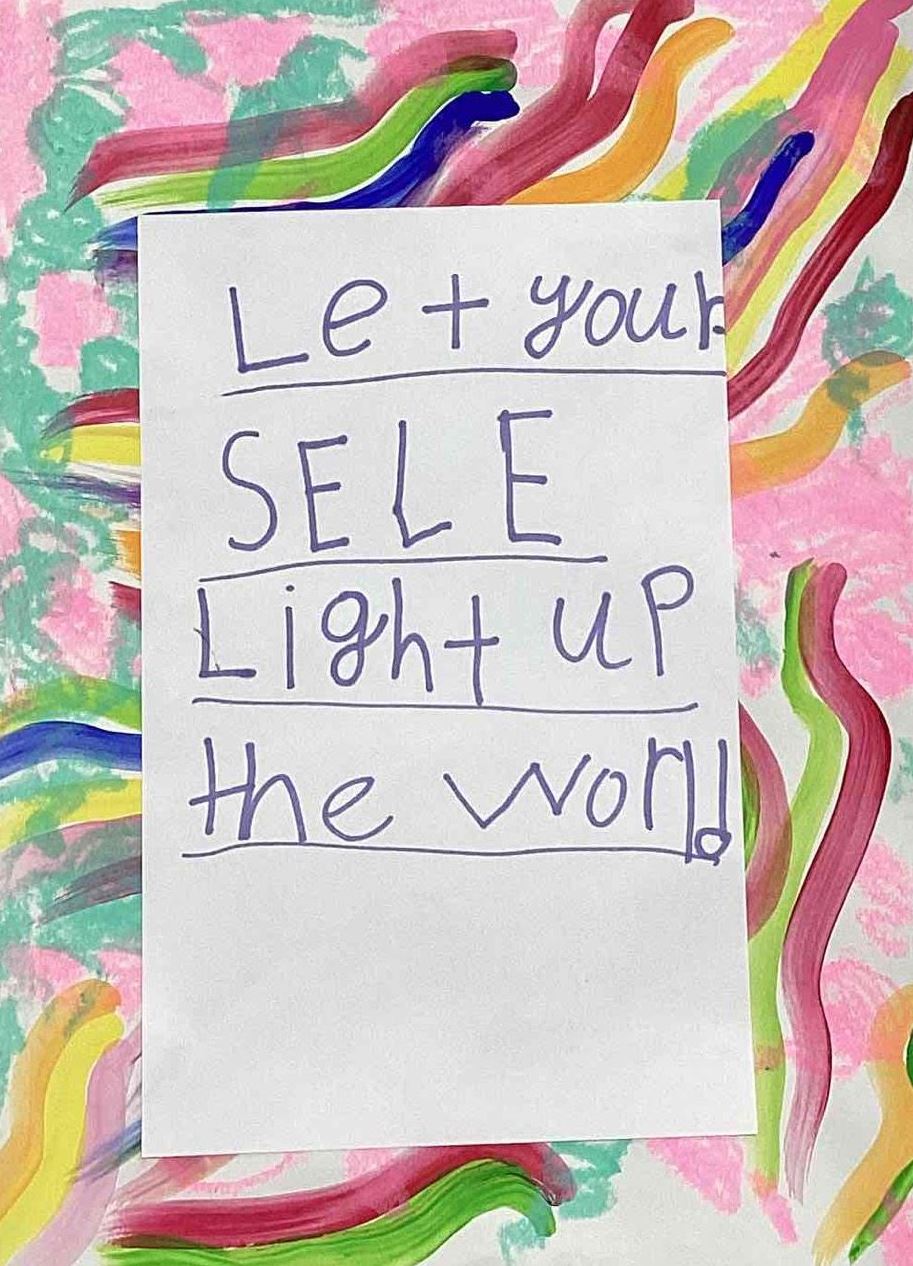 Let your
SELE
Light up
the world